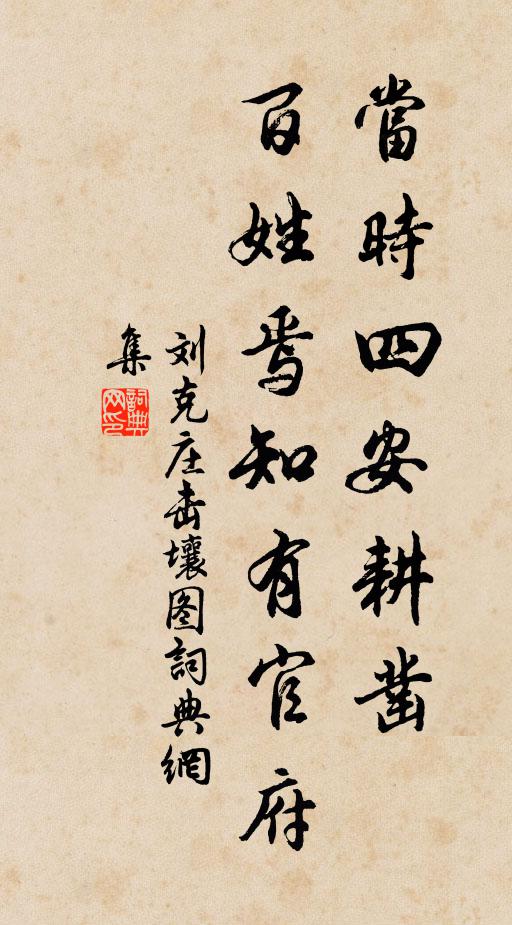 當時四安耕凿
百姓焉知有官府
刘克庄击壤图詞典網
集
詞典
网印